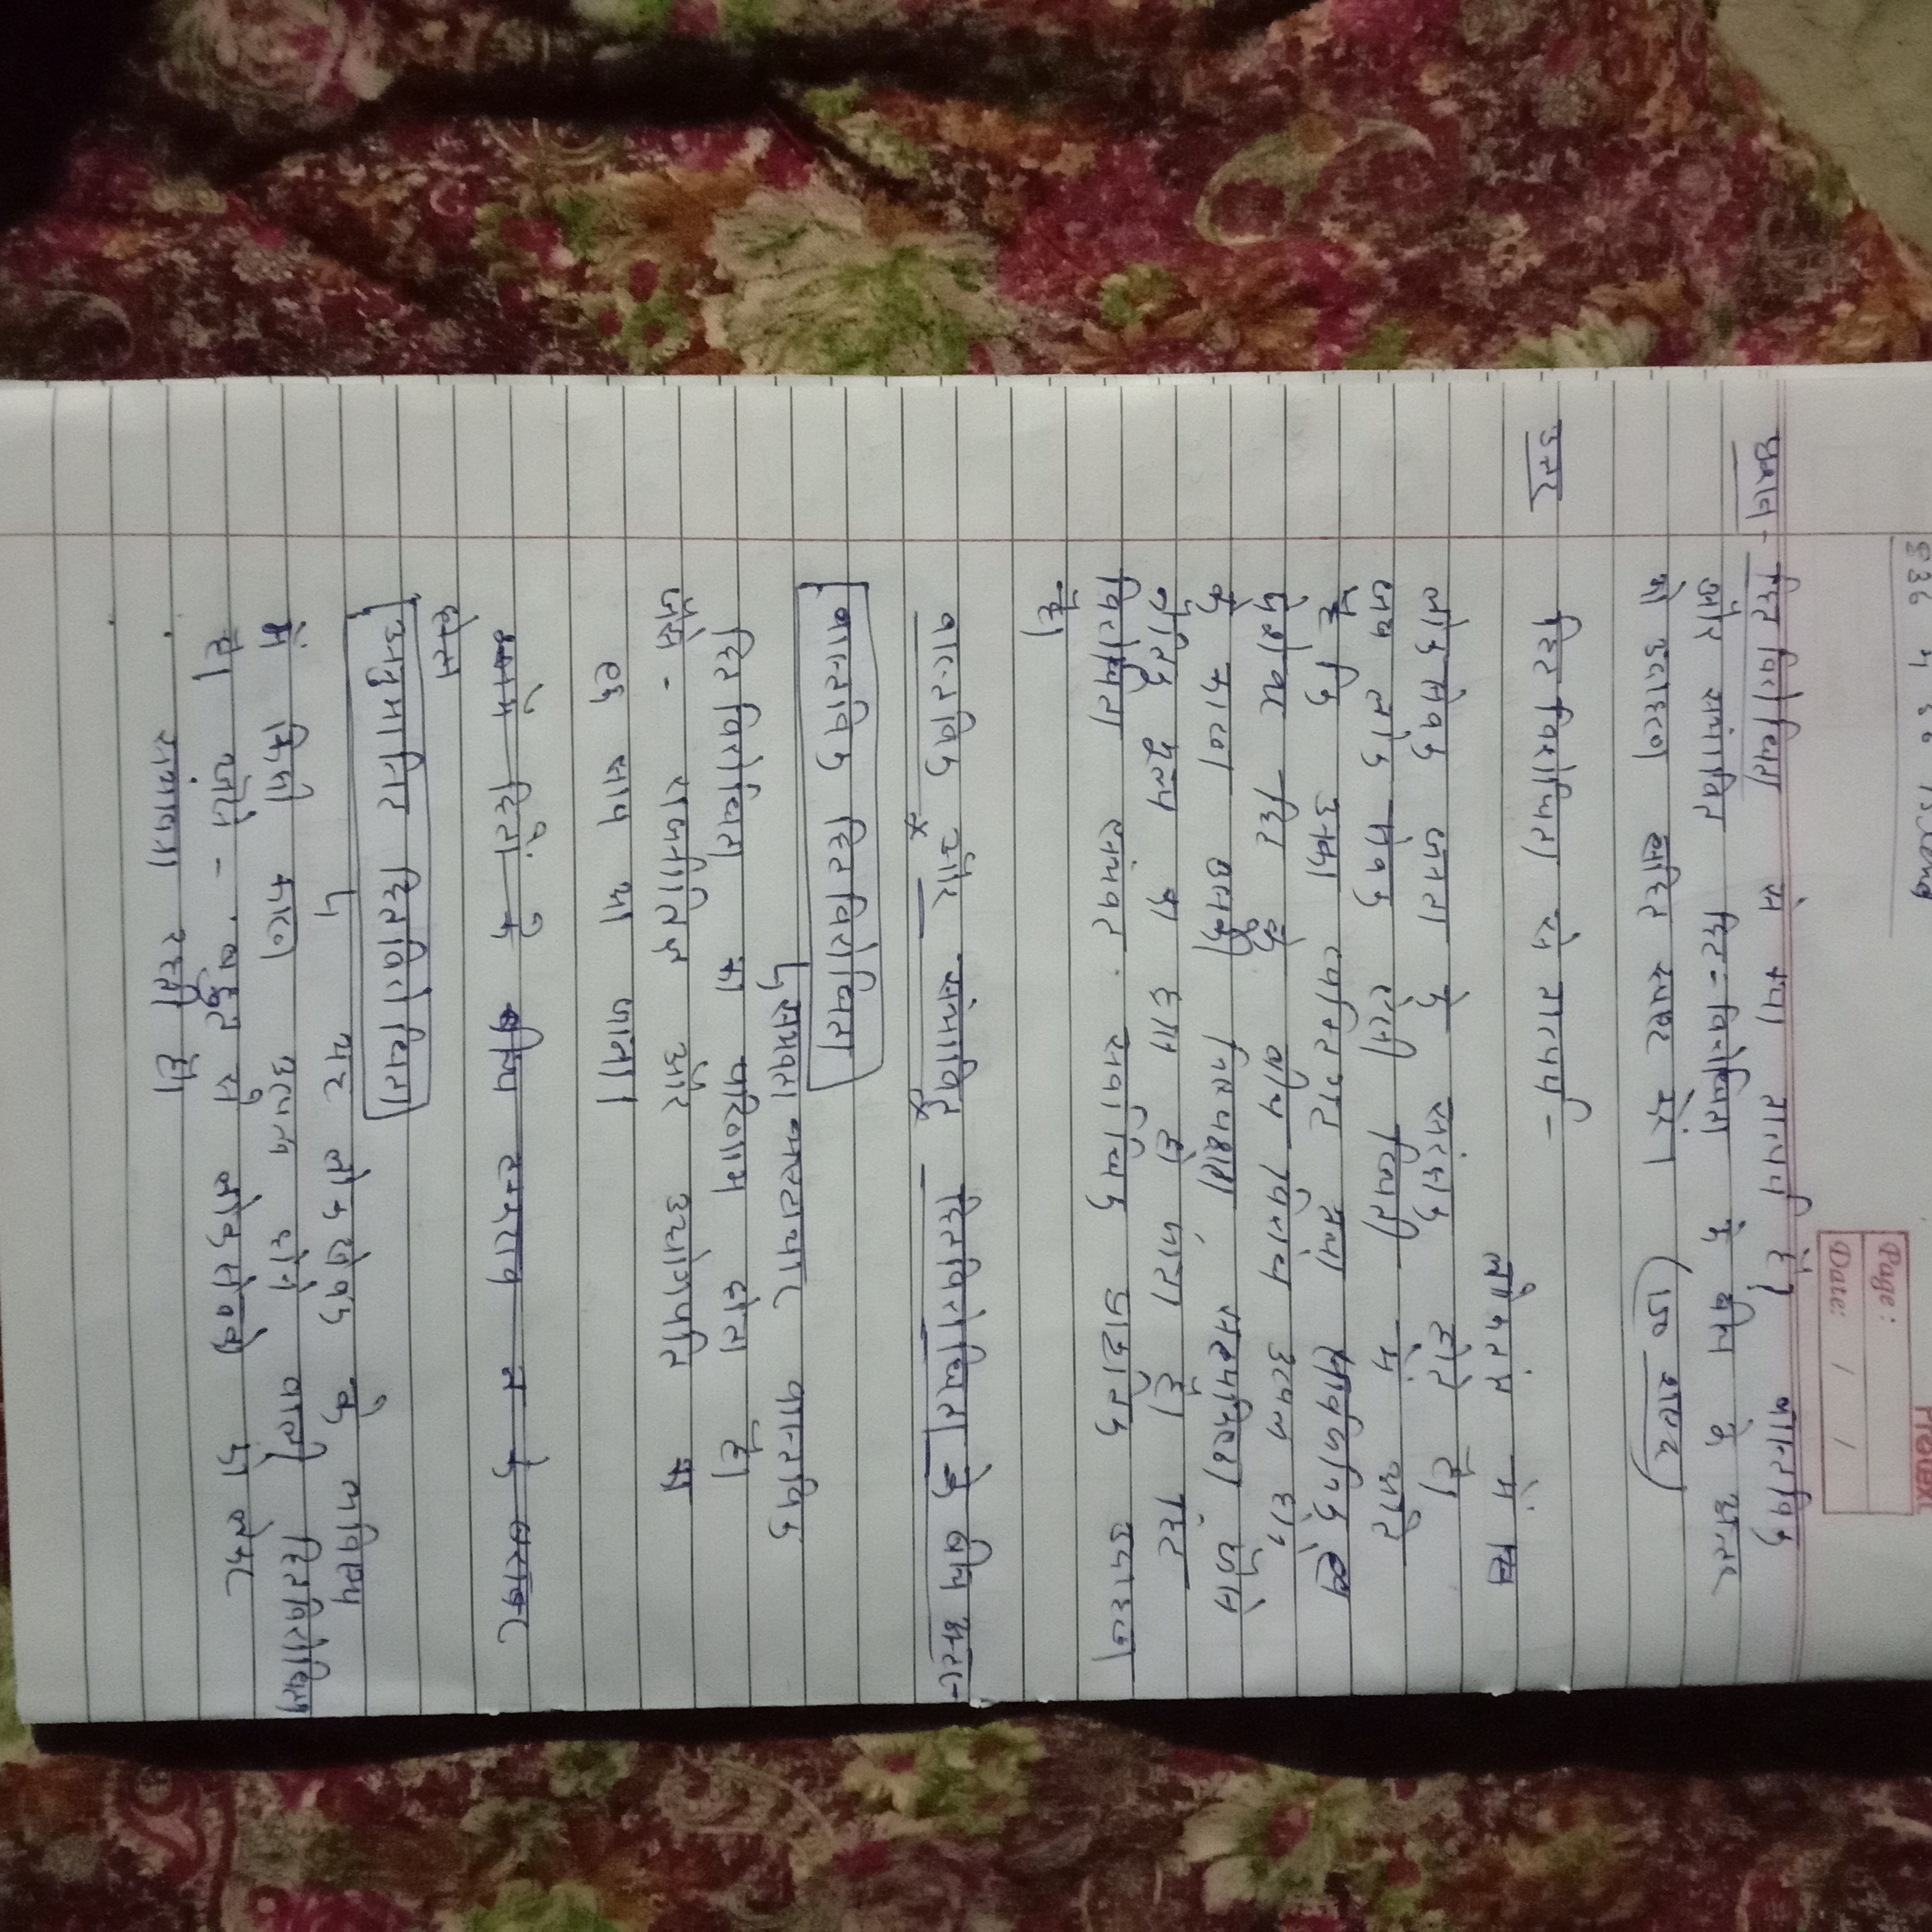 Page:
Date: / /
प्रश्न - हित विरोधिता से क्या तात्पर्य है? वास्तविक
और संभावित हित-विरोधिता के बीच के अंतर
को उदाहरण सहित स्पष्ट करें। (150 शब्द)
उत्तर हित विरोधिता से तात्पर्य -
लोकतंत्र में
लोकसेवक जनता के संरक्षक होते है।
जब लोक सेवक ऐसी स्थिति में
कि उनका व्यक्तिगत तथा सार्वजनिक
हित के बीच उत्पन्न
के कारण उसकी निष्पक्षता सत्यनिष्ठा जैसे
नैतिक मूल्य का ह्रास हो जाता है। हित
विरोधिता संभवतः सर्वाधिक उदाहरण
है।
वास्तविक और संभावित हितविरोधिता के बीच अंतर-
वास्तविक हितविरोधिता
भ्रष्टाचार वास्तविक
हित विरोधिता का परिणाम होता है।
जैसे - राजनीतिक और उद्योगपति का
एक साथ आ जाना।
हितों के बीच टकराव न के बराबर
होना
अनुमानित हितविरोधिता
यह लोकसेवक के भविष्य
में किसी कारण उत्पन्न होने वाली हितविरोधिता
है। जैसे - बहुत से लोकसेवको को लेकर
संभावना रहती है।